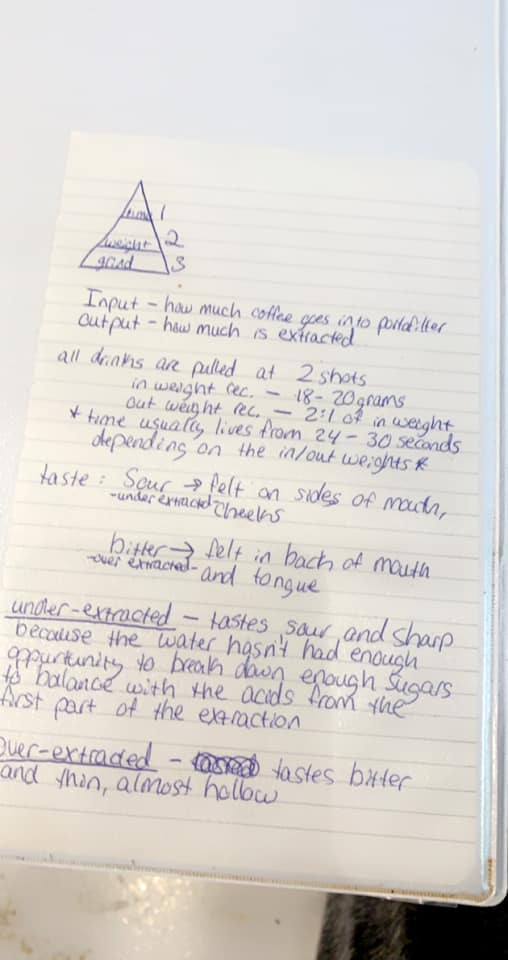 time 1
weight 2
grind 3
Input - how much coffee goes into portafilter
output - how much is extracted
all drinks are pulled at 2 shots
in weight rec. - 18-20 grams
out weight rec. - 2:1 of in weight
* time usually lives from 24 - 30 seconds
depending on the in/out weights *
taste : Sour → felt on sides of mouth,
-under extracted cheeks
bitter → felt in back of mouth
-over extracted- and tongue
under-extracted - tastes sour and sharp
because the water hasn't had enough
oppurtunity to break down enough sugars
to balance with the acids from the
first part of the extraction
Over-extracted - tastes bitter
and thin, almost hollow